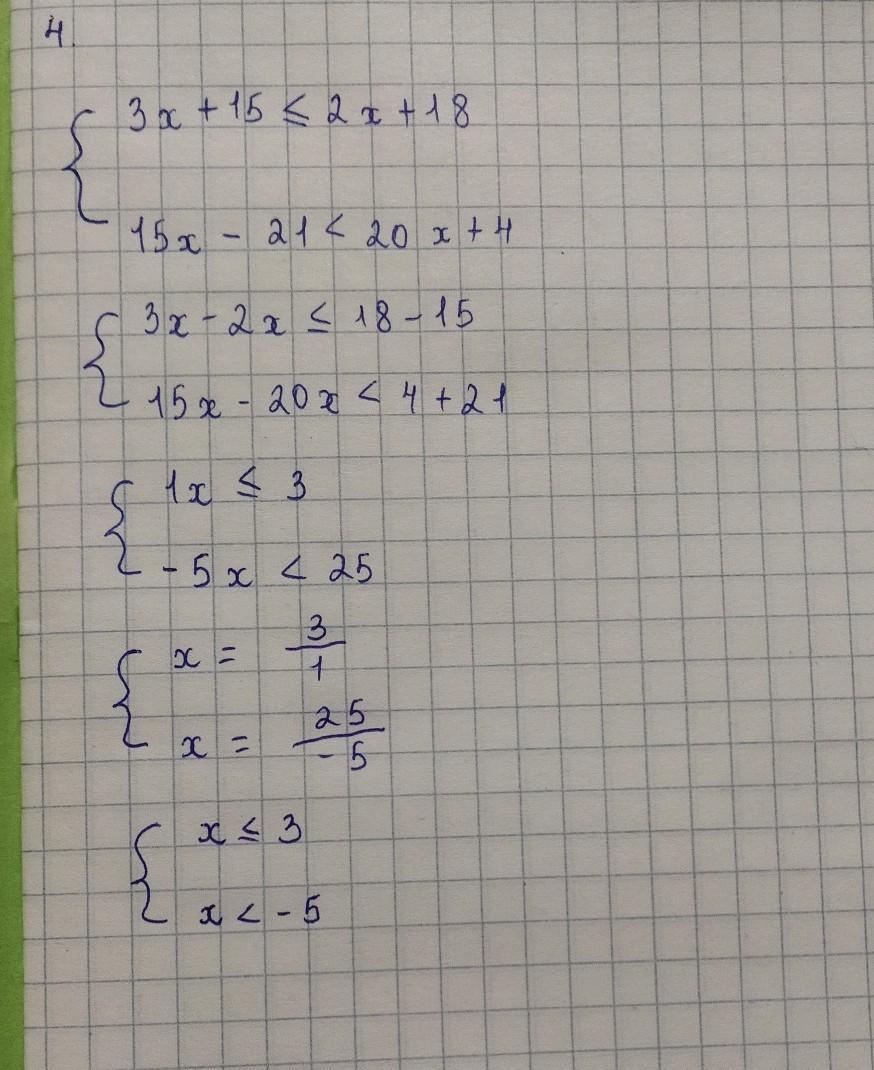 4.
3x + 15 ≤ 2x + 18
15x - 21 < 20x + 4
3x - 2x ≤ 18 - 15
15x - 20x < 4 + 21
1x ≤ 3
-5x < 25
x = 3/1
x = 25/-5
x ≤ 3
x < -5